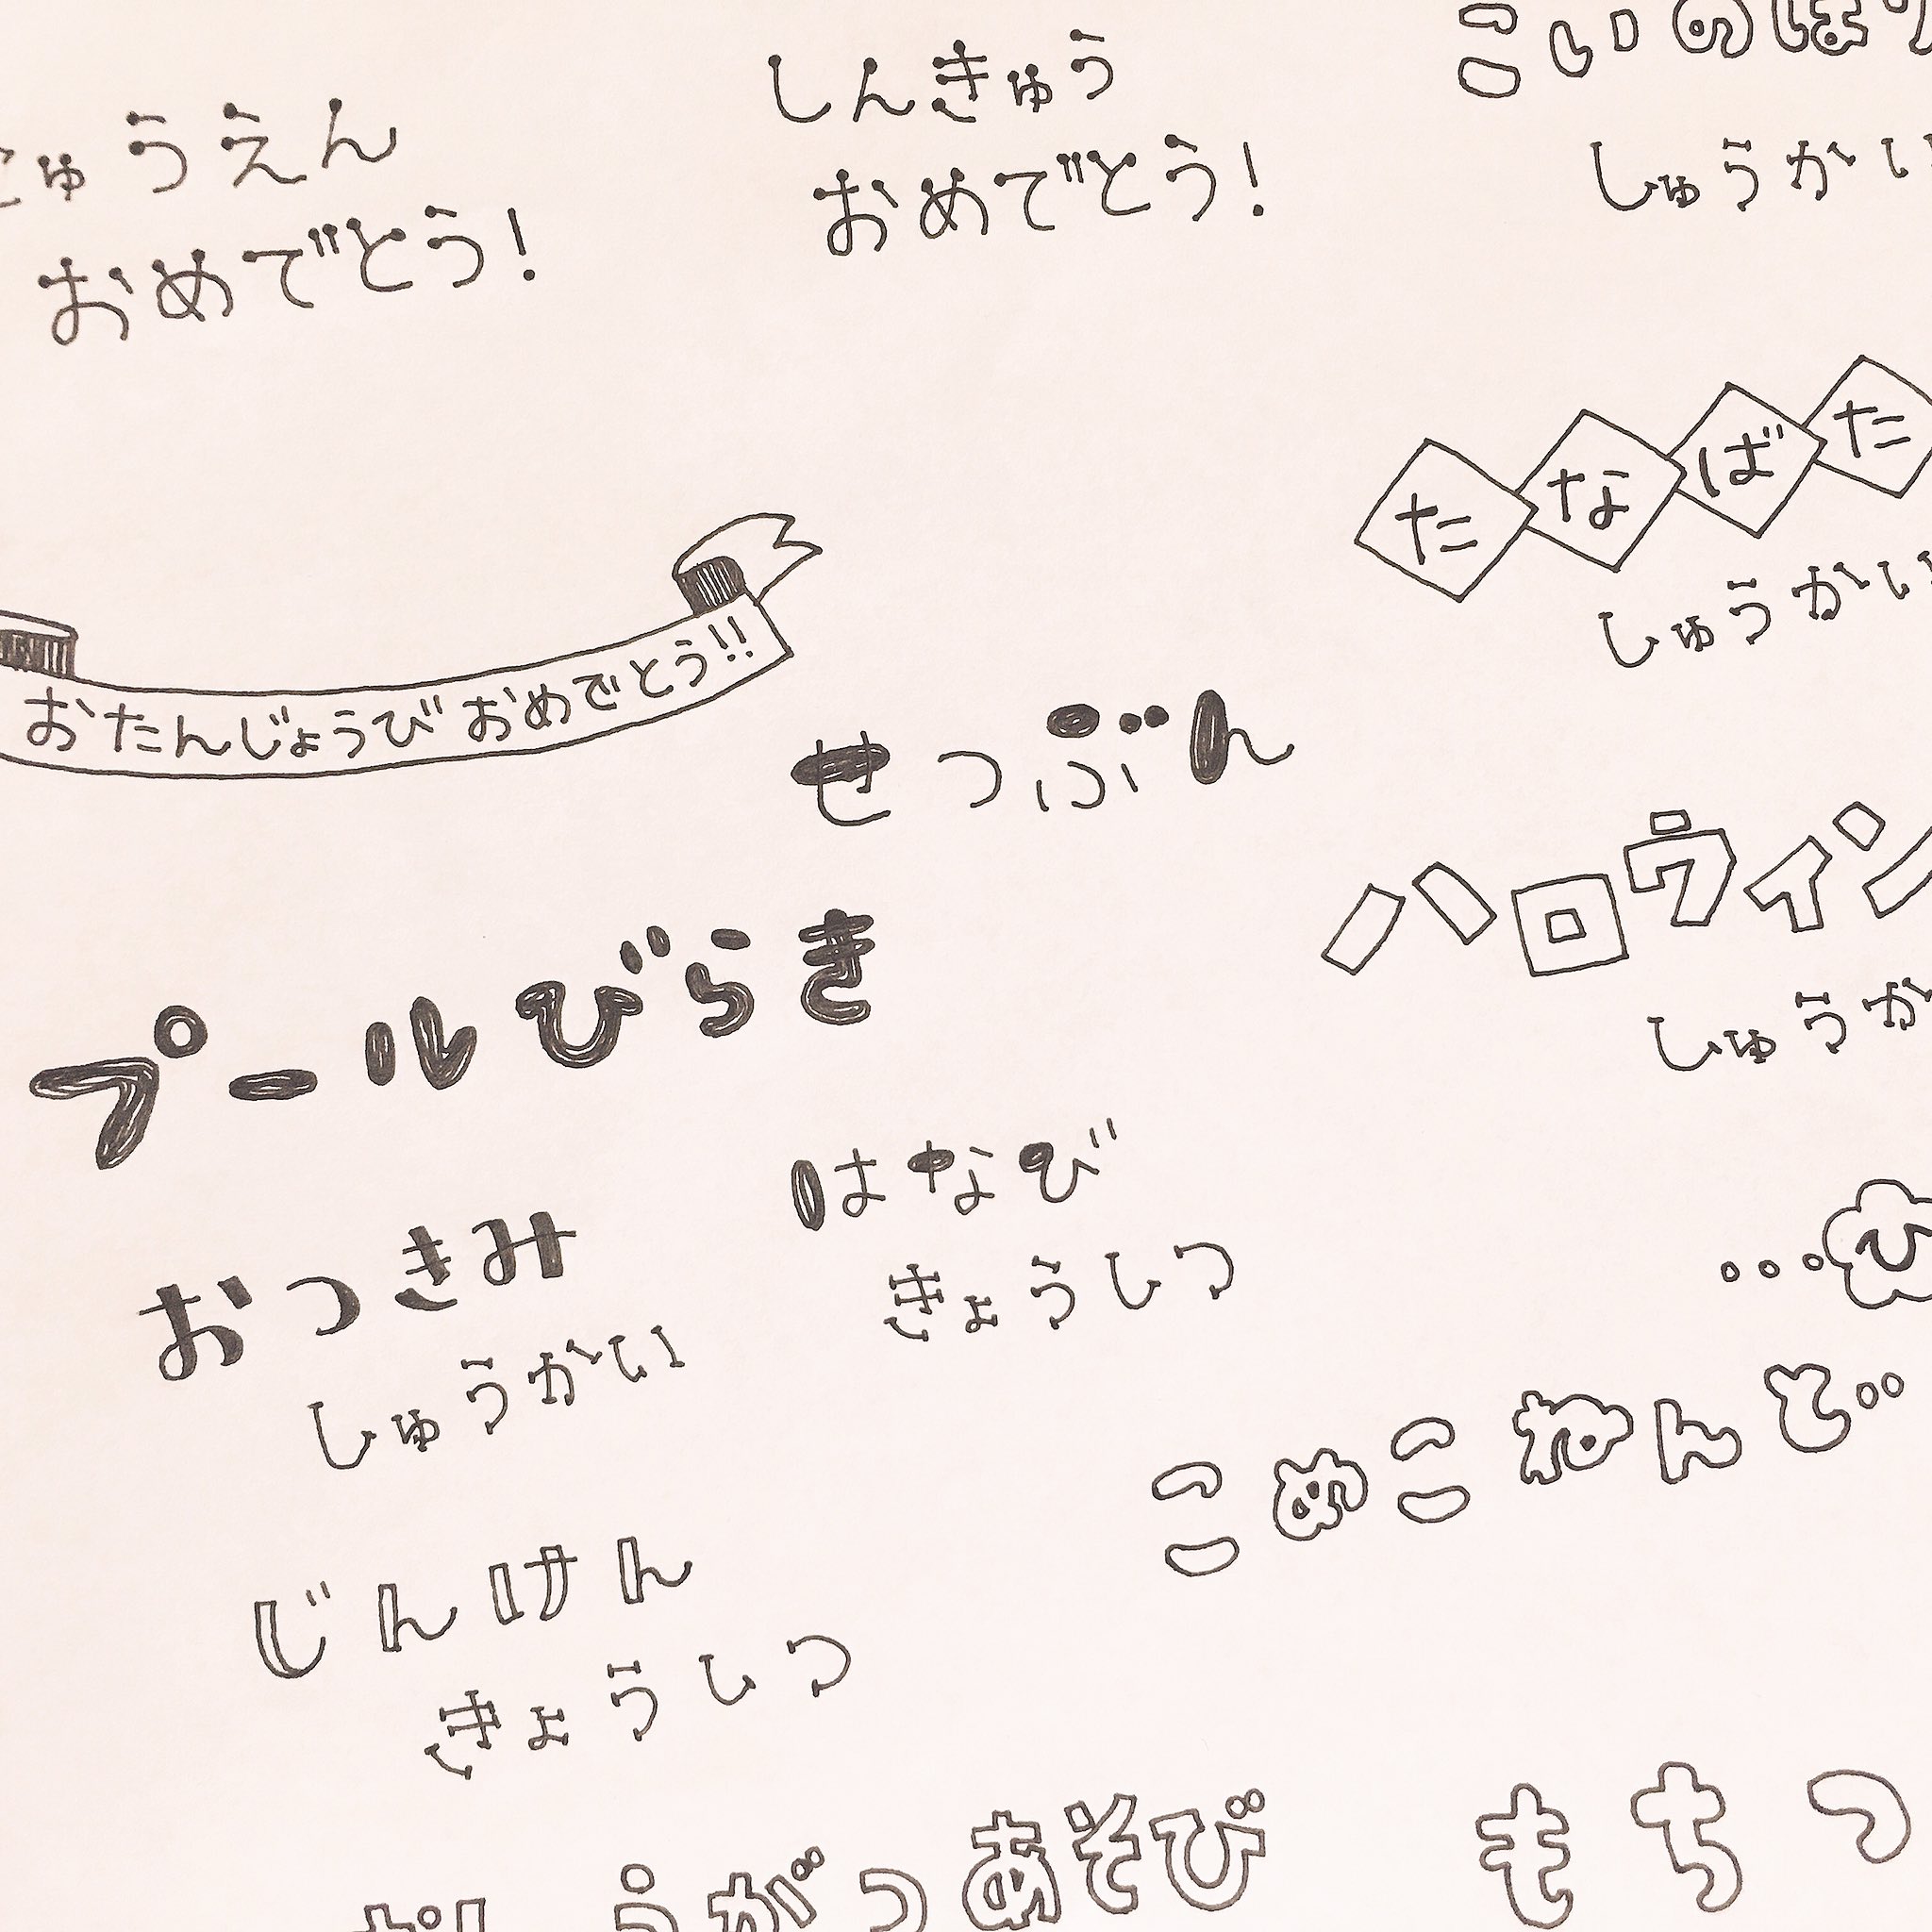 ゅうえん
おめでとう!
しんきゅう
おめでとう!
こいのぼり
しゅうがい
たなばた
しゅうがい
おたんじょうびおめでとう!!
せつぶん
ハロウィン
しゅうか
プールびらき
はなび
きょうしつ
おつきみ
しゅうがい
…ひ
こめこねんど
じんけん
きょうしつ
うがつあそび
もちつ